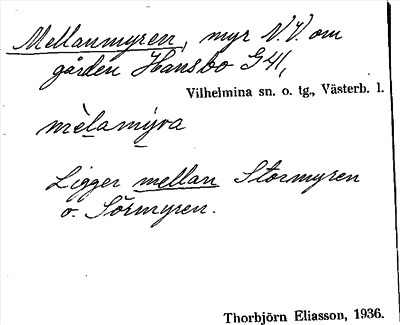 Mellanmyren, myr N.V. om
gården Hansbo G41,
Vilhelmina sn. o. tg., Västerb. l.
mèlamýra
Ligger mellan Stormyren
o. Sörmyren.
Thorbjörn Eliasson, 1936.